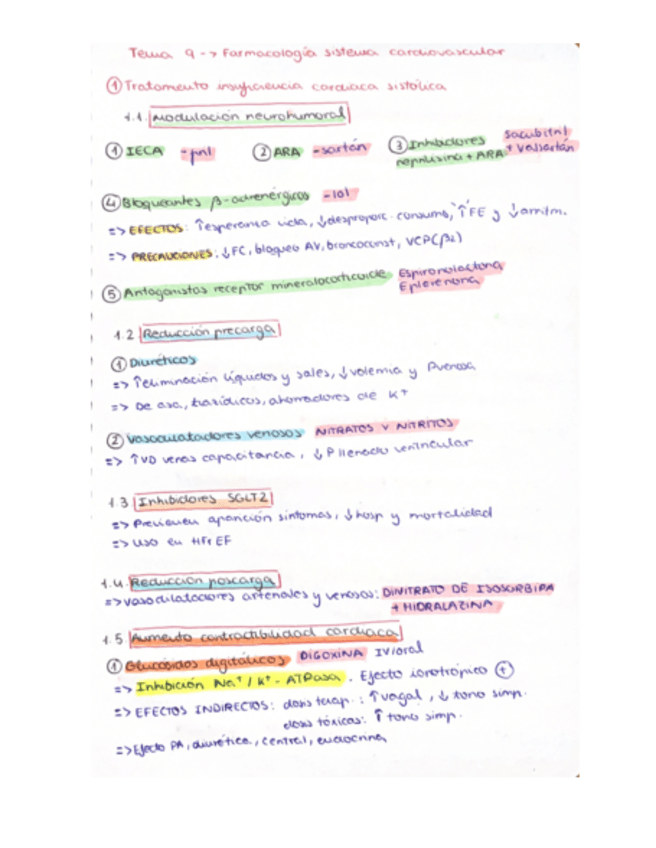 Tema 9 -> Farmacología sistema cardiovascular
① Tratamiento insuficiencia cardiaca sistólica
1.1. Modulación neurohumoral
① IECA -pril ② ARA -sartán ③ Inhibidores neprilisina + ARA sacubitril + valsartán
④ Bloqueantes β-adrenérgicos -lol
=> EFECTOS: ↑esperanza vida, ↓desproporc. consumo, ↑FE y ↓arritm.
=> PRECAUCIONES: ↓FC, bloqueo AV, broncoconst, VCP(β2)
⑤ Antagonistas receptor mineralocorticoide Espironolactona
Eplerenona
1.2 Reducción precarga
① Diuréticos
=> ↑eliminación líquidos y sales, ↓volemia y Pvenosa
=> De asa, tiazídicos, ahorradores de K+
② Vasodilatadores venosos NITRATOS Y NITRITOS
=> ↑VD venas capacitancia, ↓P llenado ventricular
1.3 Inhibidores SGLT2
=> Previenen aparición síntomas, ↓hosp y mortalidad
=> Uso en HFrEF
1.4. Reducción poscarga
=> vasodilatadores arteriales y venosos: DINITRATO DE ISOSORBIDA
+ HIDRALAZINA
1.5 Aumento contractibilidad cardiaca
① Glucósidos digitálicos DIGOXINA IV/oral
=> Inhibición Na+/K+-ATPasa. Efecto ionotrópico ⊕
=> EFECTOS INDIRECTOS: dosis terap.: ↑vagal, ↓ tono simp.
dosis tóxicas: ↑ tono simp.
=> Efecto PA, diurética, central, endocrina